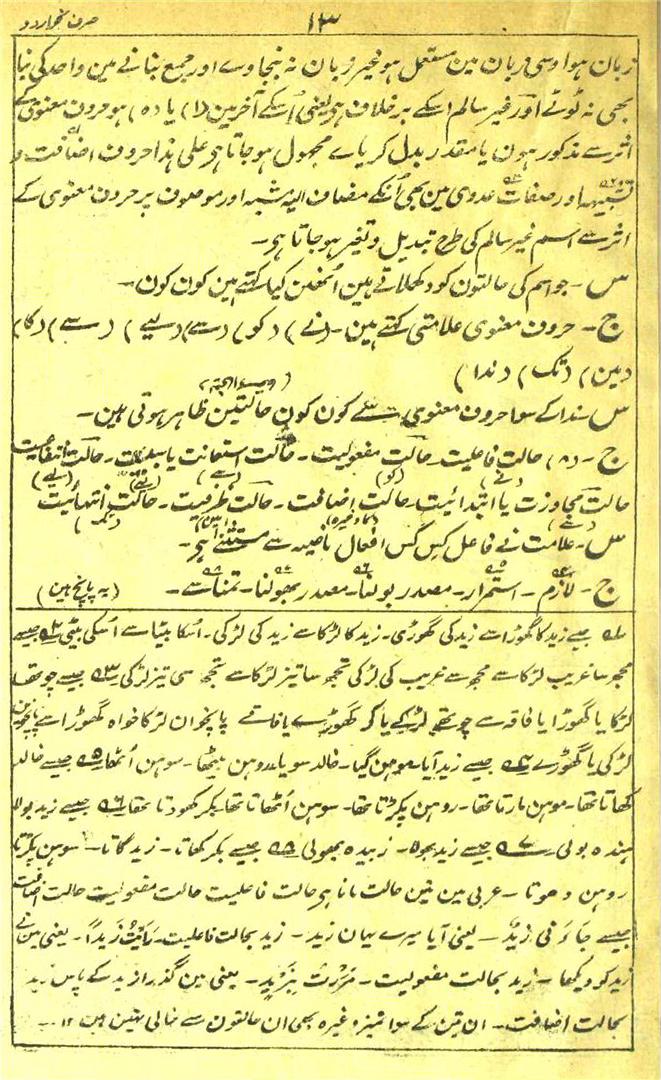 ۱۳
صرف نحو اردو
زبان ہوا وسی زبان مین مستعمل ہو غیر زبان نہ بنجاوے اور جمع بنانے مین واحد کی بنا
بھی نہ ٹوٹے اور غیر سالم اسکے برخلاف ہو یعنی اُسکے آخر مین (ا) یا (ہ) ہو حرون معنوی کے
اثر سے مذکور ہون یا مقدر بدل کر یاے مجہول ہو جاتا ہی علی ہذا حرون اضافت و
تشبیہہ اور صفات عددی مین بھی اُنکے مضاف الیہ مشبہ اور موصون پر حرون معنوی کے
اثر سے اسم غیر سالم کی طرح تبدیل و تغیر ہو جاتا ہی۔
س۔ جو اسم کی حالتون کو دکھلاتے ہین اُنھین کیا کہتے ہین کون کون۔
ج۔ حرون معنوی علامتی کہتے ہین۔ (نے) (کو) (سے) (لیے) (سے) (کا)
(مین) (تک) (ندا)
س ندا کے سوا حرون معنوی سے کون کون حالتین ظاہر ہوتی ہین۔
ج۔ (۸) حالت فاعلیت۔ حالت مفعولیت۔ حالت استعانت یا سببیت۔ حالت انتفاعیت
(نے) (کو) (سے) (لیے)
حالت مجاوزت یا ابتدائیت۔ حالت اضافت۔ حالت ظرفیت۔ حالت انتہائیت
(سے) (کا وغیرہ) (مین) (تک)
س۔ علامت نے فاعل کِس کِس افعال ماضیہ سے مستثنے ہی۔
ج۔ لازم۔ استمرار۔ مصدر بولنا۔ مصدر بھولنا۔ تمنا سے۔ (یہ پانچ ہین)
۵۱ جیسے زید کا گھوڑا سے زید کی گھوڑی۔ زید کا لڑکا سے زید کی لڑکی۔ اُسکا بیٹا سے اُسکی بیٹی ۵۲ جیسے
مجھ سا غریب لڑکا سے مجھ سے غریب کی لڑکی تجھ سا تیز لڑکا سے تجھ سی تیز لڑکی ۵۳ جیسے چوتھا
لڑکا یا گھوڑا یا فاقہ سے چوتھے لڑکے یا کہ گھوڑے یا فاقے پانچوان لڑکا خواہ گھوڑا سے پانچوین
لڑکی یا گھوڑے ۵۴ جیسے زید آیا۔ موہن گیا۔ خالد سویا۔ روہن بیٹھا۔ سوہن اُٹھا ۵۵ جیسے خالد
کھاتا تھا۔ موہن مارتا تھا۔ روہن پکڑتا تھا۔ سوہن اُٹھاتا تھا۔ بکر کھودتا تھا ۵۶ جیسے زید بولا
ہندہ بولی ۵۷ جیسے زید بھولا۔ زبیدہ بھولی ۵۸ جیسے بکر کھاتا۔ زید گاتا۔ سوہن پکڑتا
روہن دھوتا۔ عربی مین تین حالت مانا ہی حالت فاعلیت حالت مفعولیت حالت اضافت
جیسے جَاءَنِی زَیْدٌ۔ یعنی آیا میرے یہان زید۔ زید بحالت فاعلیت۔ رَأَیْتُ زَیْدًا۔ یعنی مین نے
زید کو دیکھا۔ زید بحالت مفعولیت۔ مَرَرْتُ بِزَیْدٍ۔ یعنی مین گذرا زید کے پاس زید
بحالت اضافت۔ ان تین کے سوا تمیز وغیرہ بھی ان حالتون سے خالی نہین ہین ۱۲۔